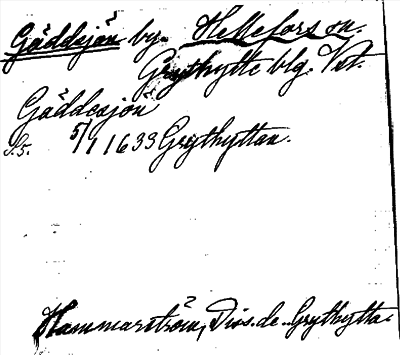 Gäddsjön by. Hellefors sn.
Grythytte blg. Vst.
Gäddesjön
S. 5. 5/1 1633 Grythyttan.
Hammarström, Diss. de Grythytta.